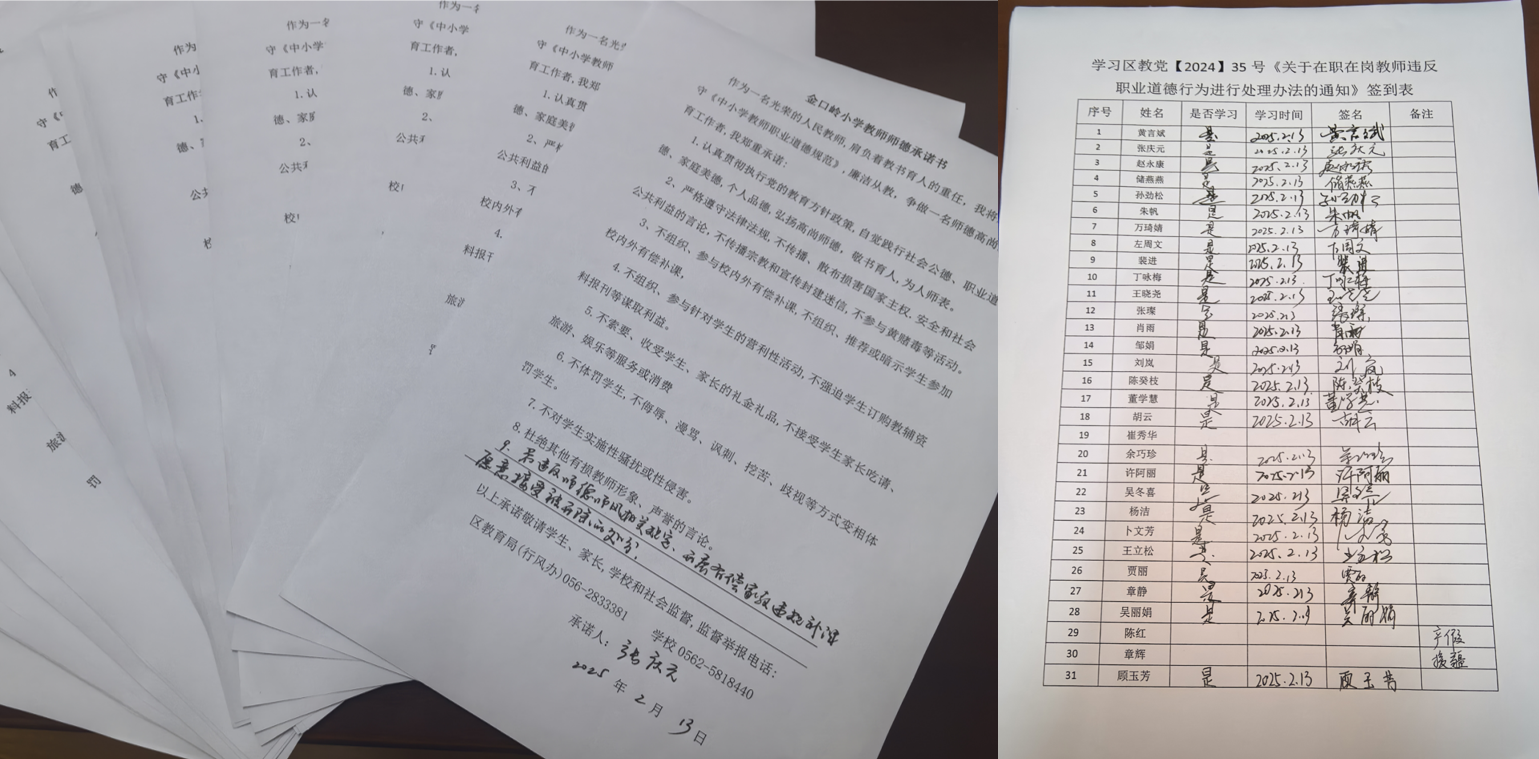 作为一名
守《中小学
育工作者,
1.认
德、家
2、
公共利
校
作为一名
守《中小学
育工作者,
1.认
德、家庭
2、
公共利
校
旅游
作为一名光
守《中小学教师
育工作者,我郑
1.认真贯
德、家庭美
2、严格
公共利益的
3、不
校内外有
4.
科报刊
旅游
罚
金口岭小学教师师德承诺书
作为一名光荣的人民教师,肩负着教书育人的重任,我将
守《中小学教师职业道德规范》,廉洁从教,争做一名师德高尚
育工作者,我郑重承诺:
1.认真贯彻执行党的教育方针政策,自觉践行社会公德、职业道
德、家庭美德,个人品德,弘扬高尚师德。敬书育人,为人师表。
2、严格遵守法律法规,不传播、散布损害国家主权、安全和社会
公共利益的言论,不传播宗教和宣传封建迷信,不参与黄赌毒等活动。
3、不组织、参与校内外有偿补课,不组织、推荐或暗示学生参加
校内外有偿补课。
4.不组织、参与针对学生的营利性活动,不强迫学生订购教辅资
科报刊等谋取利益。
5.不索要、收受学生、家长的礼金礼品,不接受学生家长吃请、
旅游、娱乐等服务或消费
6.不体罚学生,不侮辱、漫骂、讽刺、挖苦、歧视等方式变相体
罚学生。
7.不对学生实施性骚扰或性侵害。
8.杜绝其他有损教师形象、声誉的言论。
9.若违反师德师风相关规定、开展有偿家教违规补课
愿意接受被开除的处分.
以上承诺敬请学生、家长,学校和社会监督,监督举报电话:
区教育局(行风办)056-2833381 学校 0562-5818440
承诺人: 张庆元
2025 年 2 月 13 日
学习区教党【2024】35 号《关于在职在岗教师违反
职业道德行为进行处理办法的通知》签到表
序号 姓名 是否学习 学习时间 签名 备注
1 黄言斌 是 2025.2.13 黄言斌
2 张庆元 是 2025.2.13 张庆元
3 赵永康 是 2025.2.13 赵永康
4 储燕燕 是 2025.2.13 储燕燕
5 孙劲松 是 2025.2.13 孙劲松
6 朱帆 是 2025.2.13 朱帆
7 万琦婧 是 2025.2.13 万琦婧
8 左周文 是 2025.2.13 左周文
9 裴进 是 2025.2.13 裴进
10 丁咏梅 是 2025.2.13 丁咏梅
11 王晓尧 是 2025.2.13 王晓尧
12 张璨 是 2025.2.13 张璨
13 肖雨 是 2025.2.13 肖雨
14 邹娟 是 2025.2.13 邹娟
15 刘岚 是 2025.2.13 刘岚
16 陈癸枝 是 2025.2.13 陈癸枝
17 董学慧 是 2025.2.13 董学慧
18 胡云 是 2025.2.13 胡云
19 崔秀华
20 余巧珍 是 2025.2.13
21 许阿丽 是 2025.2.13 许阿丽
22 吴冬喜 是 2025.2.13
23 杨洁 是 2025.2.13 杨洁
24 卜文芳 是 2025.2.13 卜文芳
25 王立松 是 2025.2.13 王立松
26 贾丽 是 2025.2.13 贾丽
27 章静 是 2025.2.13 章静
28 吴丽娟 是 2025.2.13 吴丽娟
29 陈红 产假
30 章辉 援疆
31 顾玉芳 是 2025.2.13 顾玉芳